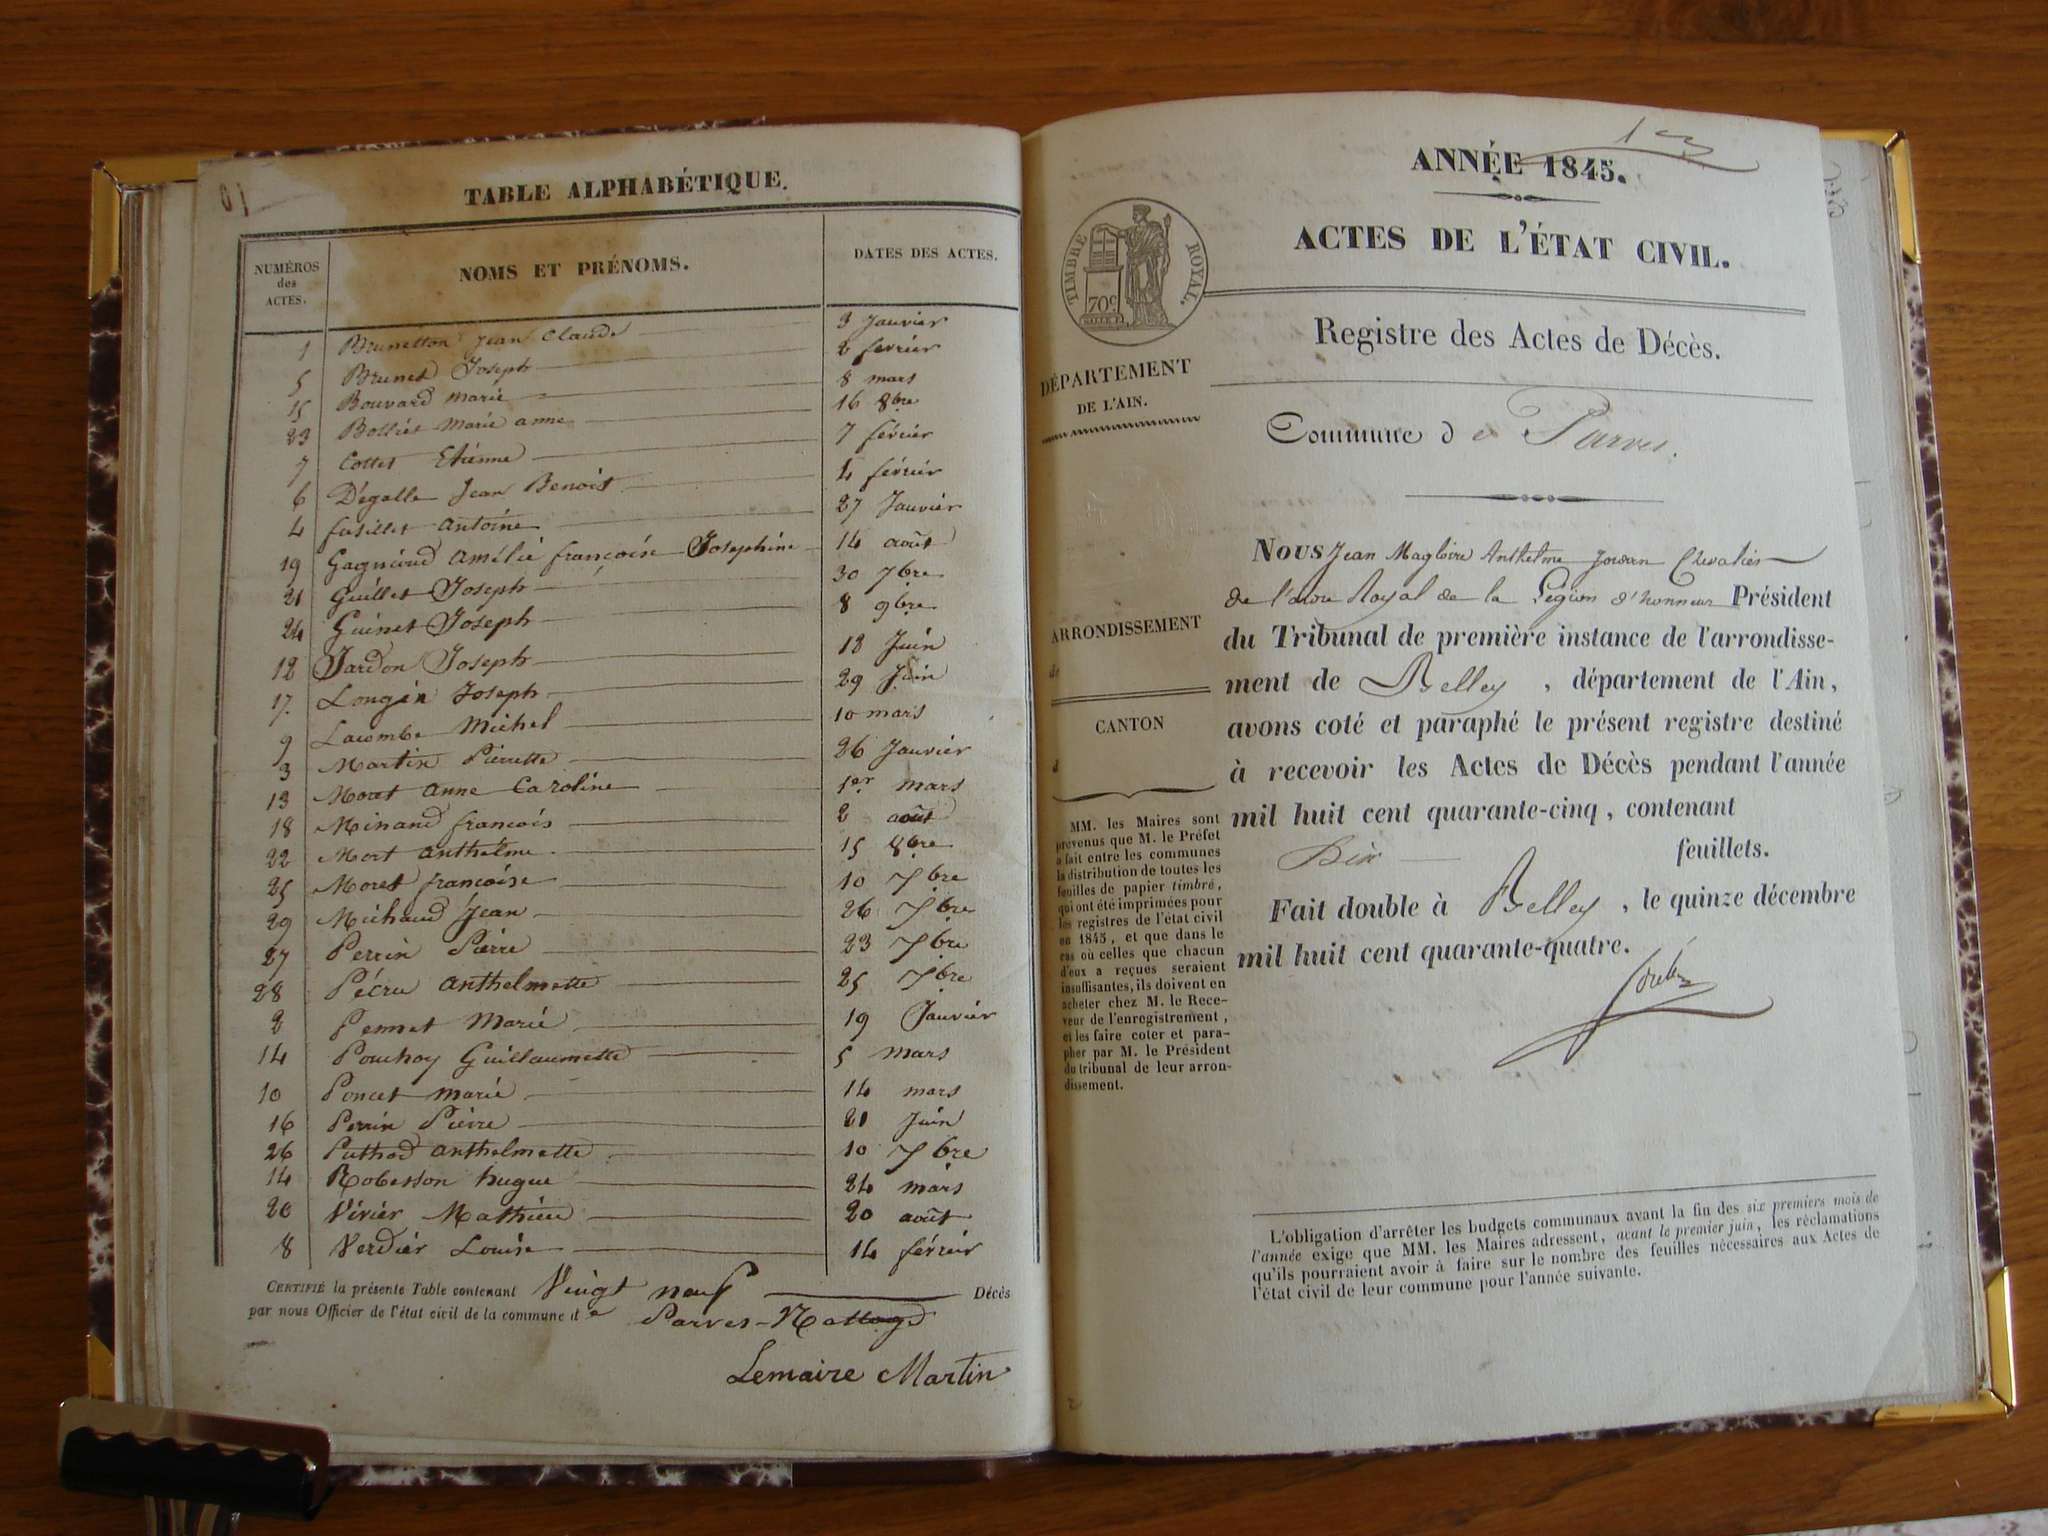 TABLE ALPHABÉTIQUE.
NUMÉROS des ACTES.
NOMS ET PRÉNOMS.
DATES DES ACTES.
1 Brunetton Jean Claude 3 Janvier
5 Brunet Joseph 2 fevrier
15 Bouvard marie 8 mars
23 Bolliet Marie anne 16 8bre
7 Cottet Etienne 7 février
6 Dégalle Jean Benoit 4 février
4 fusillet antoine 27 Janvier
19 Gagnieud amélie françoise Josephine 14 août
21 Guillet Joseph 30 7bre
24 Guinet Joseph 8 9bre
12 Jardon Joseph 18 Juin
17. Longin Joseph 29 Juin
9 Lacombe Michel 10 mars
3 Martin Pierrette 26 Janvier
13 Moret anne Caroline 1er mars
18 Minand francois 2 août
22 Mort anthelme 15 8bre
25 Moret francoise 10 7bre
29 Michaud Jean 26 7bre
27 Perrin Pierre 23 7bre
28 Pécru anthelmette 25 7bre
2 Pennet Marie 19 Janvier
14 Pouchoy Guillaumette 5 mars
10 Poncet marie 14 mars
16 Perrin Pierre 21 Juin
26 Puthod anthelmette 10 7bre
14 Robesson hugue 24 mars
20 Vivier Mathieu 20 août
8 Verdier Louise 14 février
CERTIFIÉ la présente Table contenant Vingt neuf Décès
par nous Officier de l'état civil de la commune de Parves-Nattage
Lemaire Martin
1er
ANNÉE 1845.
ACTES DE L'ÉTAT CIVIL.
TIMBRE ROYAL.
70c
Registre des Actes de Décès.
DÉPARTEMENT
DE L'AIN.
Commune de Parves.
ARRONDISSEMENT
de
CANTON
d
Nous Jean Magloire Anthelme Jordan Chevalier
de l'ordre Royal de la Légion d'honneur Président
du Tribunal de première instance de l'arrondisse-
ment de Belley, département de l'Ain,
avons coté et paraphé le présent registre destiné
à recevoir les Actes de Décès pendant l'année
mil huit cent quarante-cinq, contenant
Dix feuillets.
Fait double à Belley, le quinze décembre
mil huit cent quarante-quatre.
MM. les Maires sont
prévenus que M. le Préfet
a fait entre les communes
la distribution de toutes les
feuilles de papier timbré,
qui ont été imprimées pour
les registres de l'état civil
en 1845, et que dans le
cas où celles que chacun
d'eux a reçues seraient
insuffisantes, ils doivent en
acheter chez M. le Rece-
veur de l'enregistrement,
et les faire coter et para-
pher par M. le Président
du tribunal de leur arron-
dissement.
L'obligation d'arrêter les budgets communaux avant la fin des six premiers mois de
l'année exige que MM. les Maires adressent, avant le premier juin, les réclamations
qu'ils pourraient avoir à faire sur le nombre des feuilles nécessaires aux Actes de
l'état civil de leur commune pour l'année suivante.